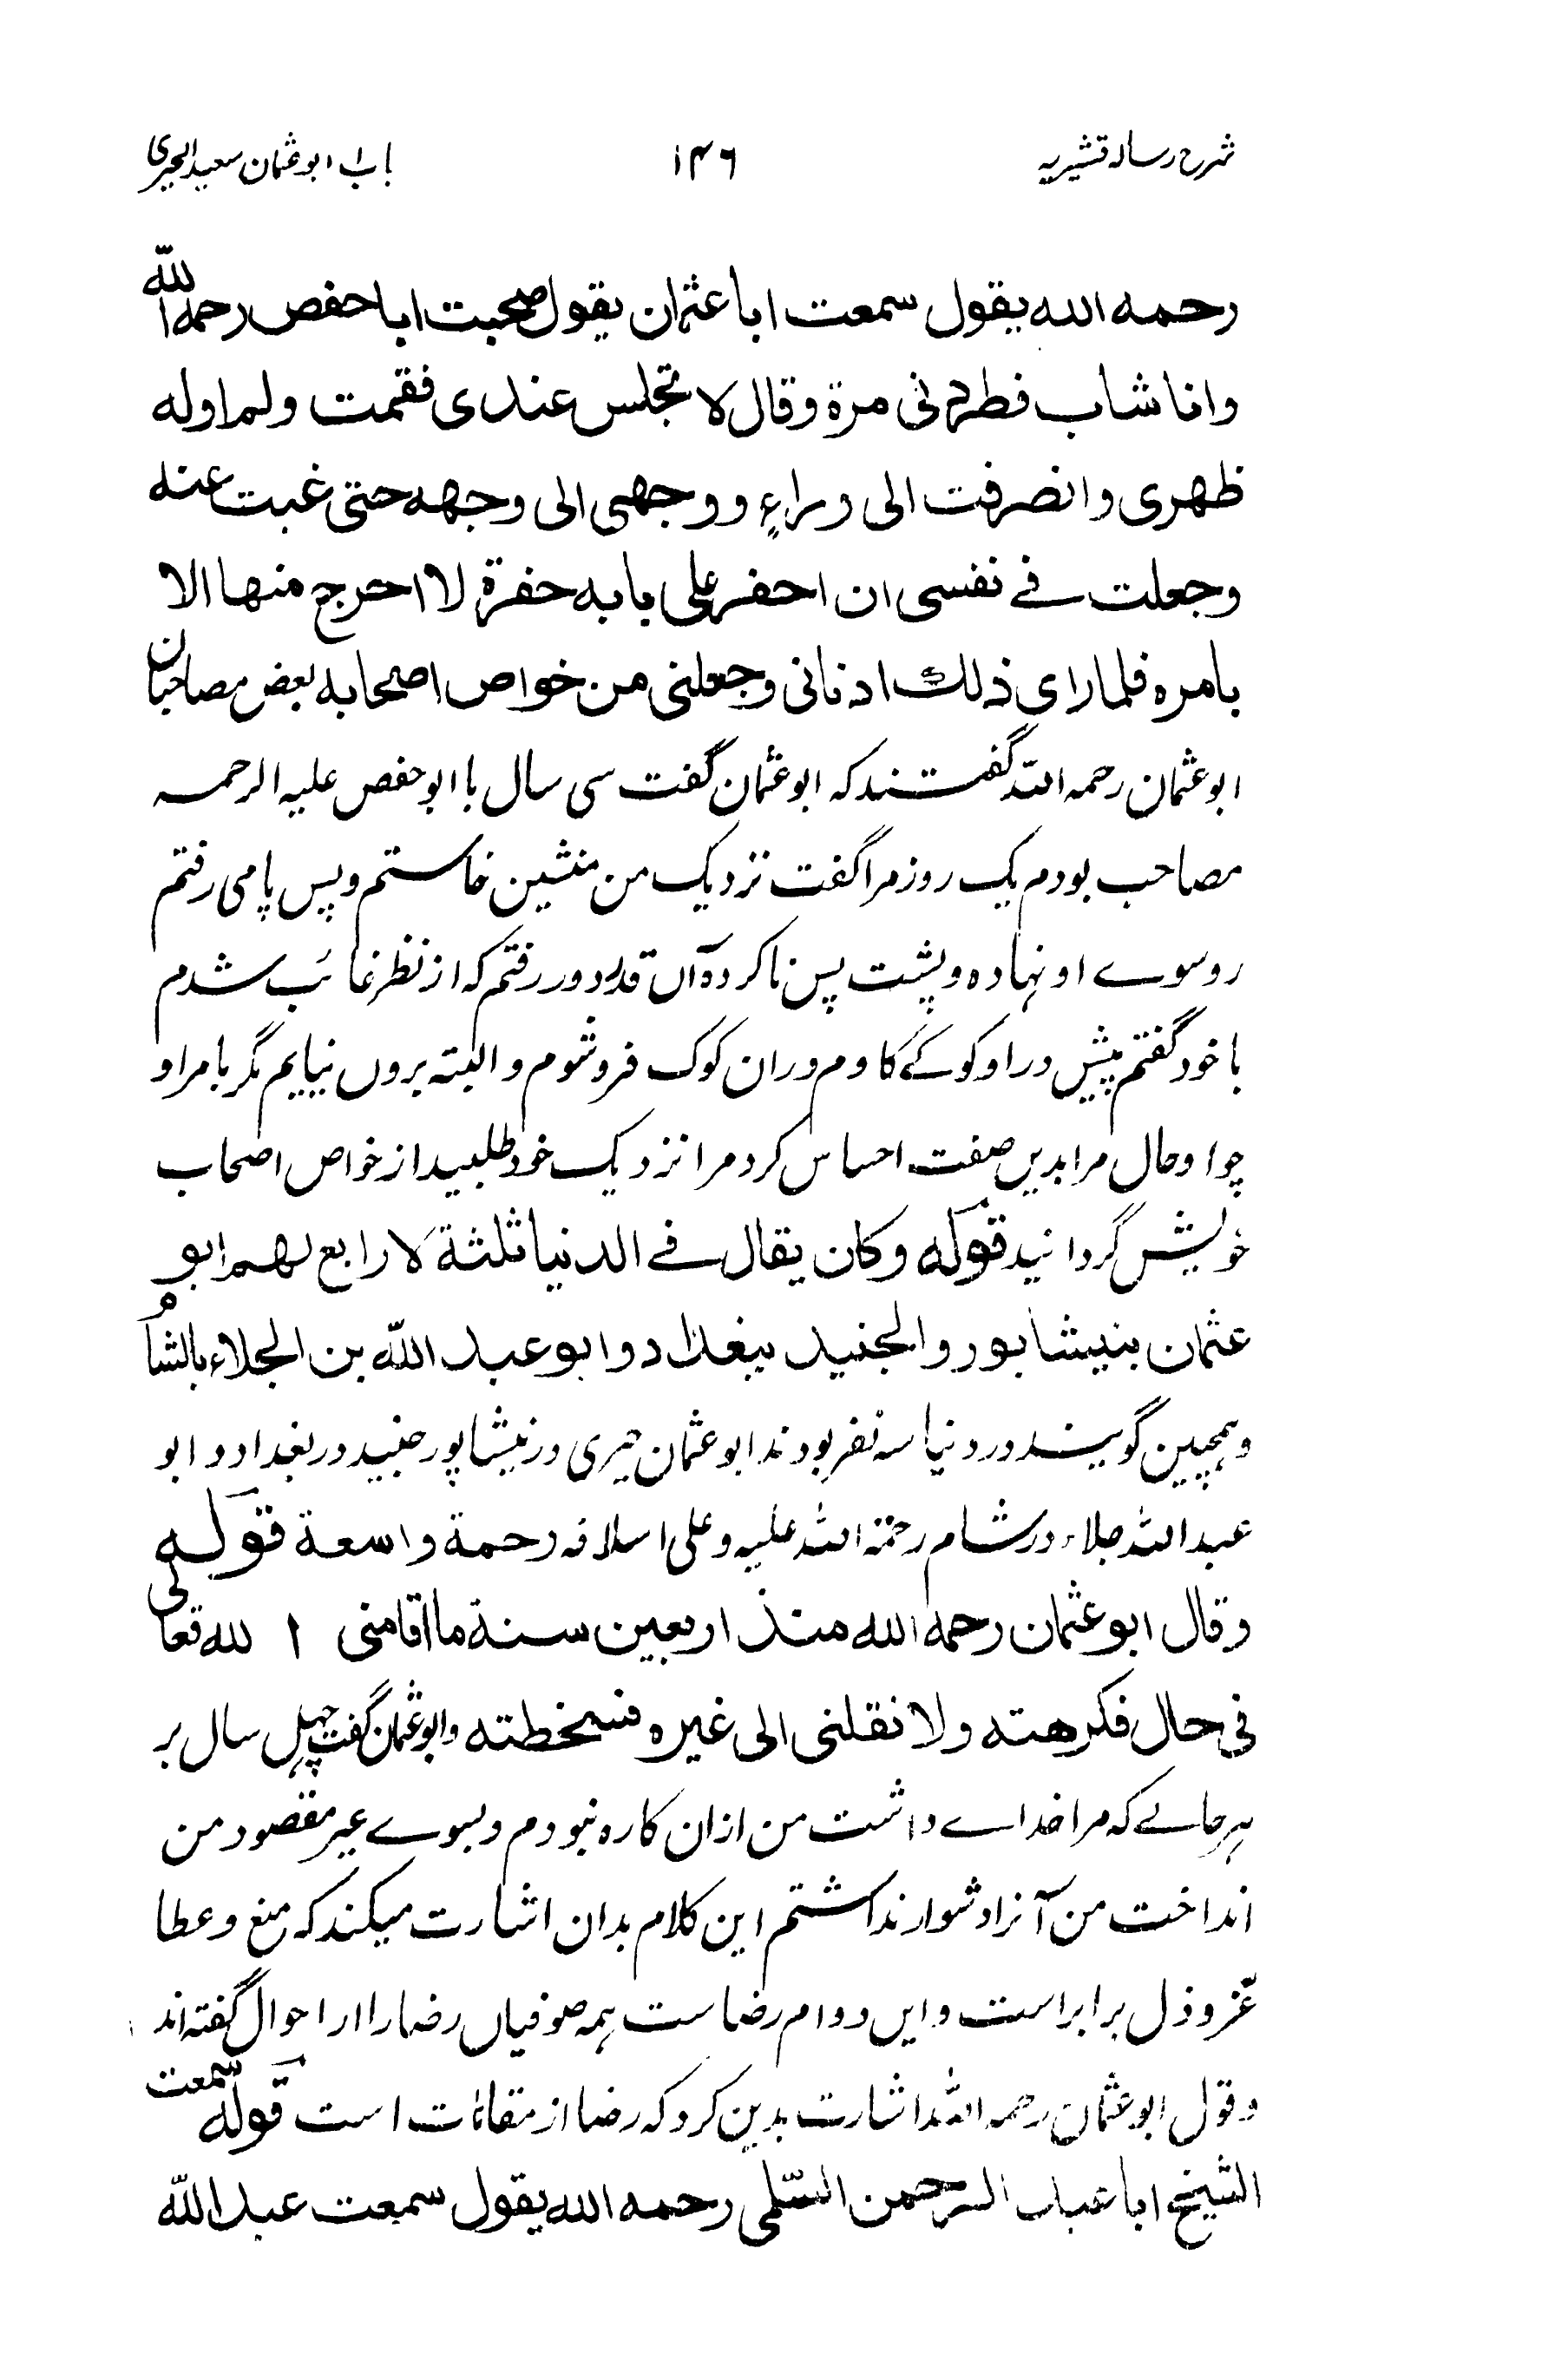 شرح رساله قشیریه ۱۴۶ باب ابو عثمان سعید الحیری
رحمه الله یقول سمعت ابا عثمان یقول صحبت ابا حفص رحمه الله
وانا شاب فطردنی مرة وقال لا تجلس عندی فقمت ولم اوله
ظهری وانصرفت الی وراء ووجهی الی وجهه حتی غبت عنه
وجعلت فے نفسی ان احفر علی بابه حفرة لا اخرج منها الا
بامره فلما رای ذلك ادنانی وجعلنی من خواص اصحابه بعض مصاحبان
ابو عثمان رحمه الله گفتند که ابو عثمان گفت سی سال با ابو حفص علیه الرحمه
مصاحب بودم یک روز مرا گفت نزدیک من منشین خاستم و پس پا می رفتم
رو سوے او نهاده و پشت پس نا کرده آں قدر دور رفتم که از نظر غائب شدم
با خود گفتم پیش در او کوکے کاوم و ران کوک فرو شوم و البته بروں نیایم مگر بامر او
چو او حال مرا بدیں صفت احساس کرد مرا نزدیک خود طلبید از خواص اصحاب
خویش گردانید قوله وکان یقال فے الدنیا ثلثة لا رابع لهم ابو
عثمان بنیشابور والجنید ببغداد وابو عبد الله بن الجلاء بالشام
و همچنین گویند در دنیا سه نفر بودند ابو عثمان حیری در نیشاپور جنید در بغداد و ابو
عبد الله جلاء در شام رحمة الله علیه وعلی اسلافه رحمة واسعة قوله
وقال ابو عثمان رحمه الله منذ اربعین سنة ما اقامنی الله تعالی
فی حال فکرهته ولا نقلنی الی غیره فسخطته و ابو عثمان گفت چهل سال بر
هر حالے که مرا خداے داشت من ازان کاره نبودم و بسوے غیر مقصود من
انداخت من آنرا دشوار نداشتم این کلام بدان اشارت میکند که منع و عطا
عز و ذل برابر است و ایں دوام رضا ست همه صوفیاں رضا را از احوال گفته اند
و قول ابو عثمان رحمه الله اشارت بدین کرد که رضا از مقامات است قوله سمعت
الشیخ ابا عبد الرحمن السلمی رحمه الله یقول سمعت عبد الله